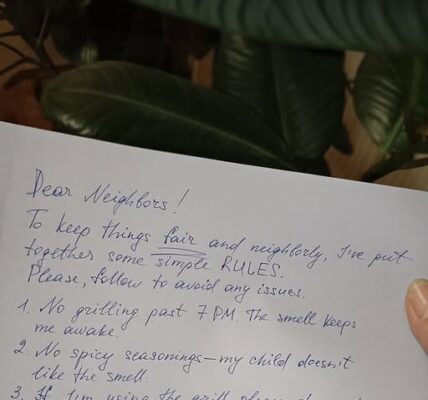 Dear Neighbors!
To keep things fair and neighborly, I've put
together some simple RULES.
Please, follow to avoid any issues.
1. No grilling past 7 PM. The smell keeps
me awake.
2. No spicy seasonings—my child doesn't
like the smell.
3. If I'm using the grill, please